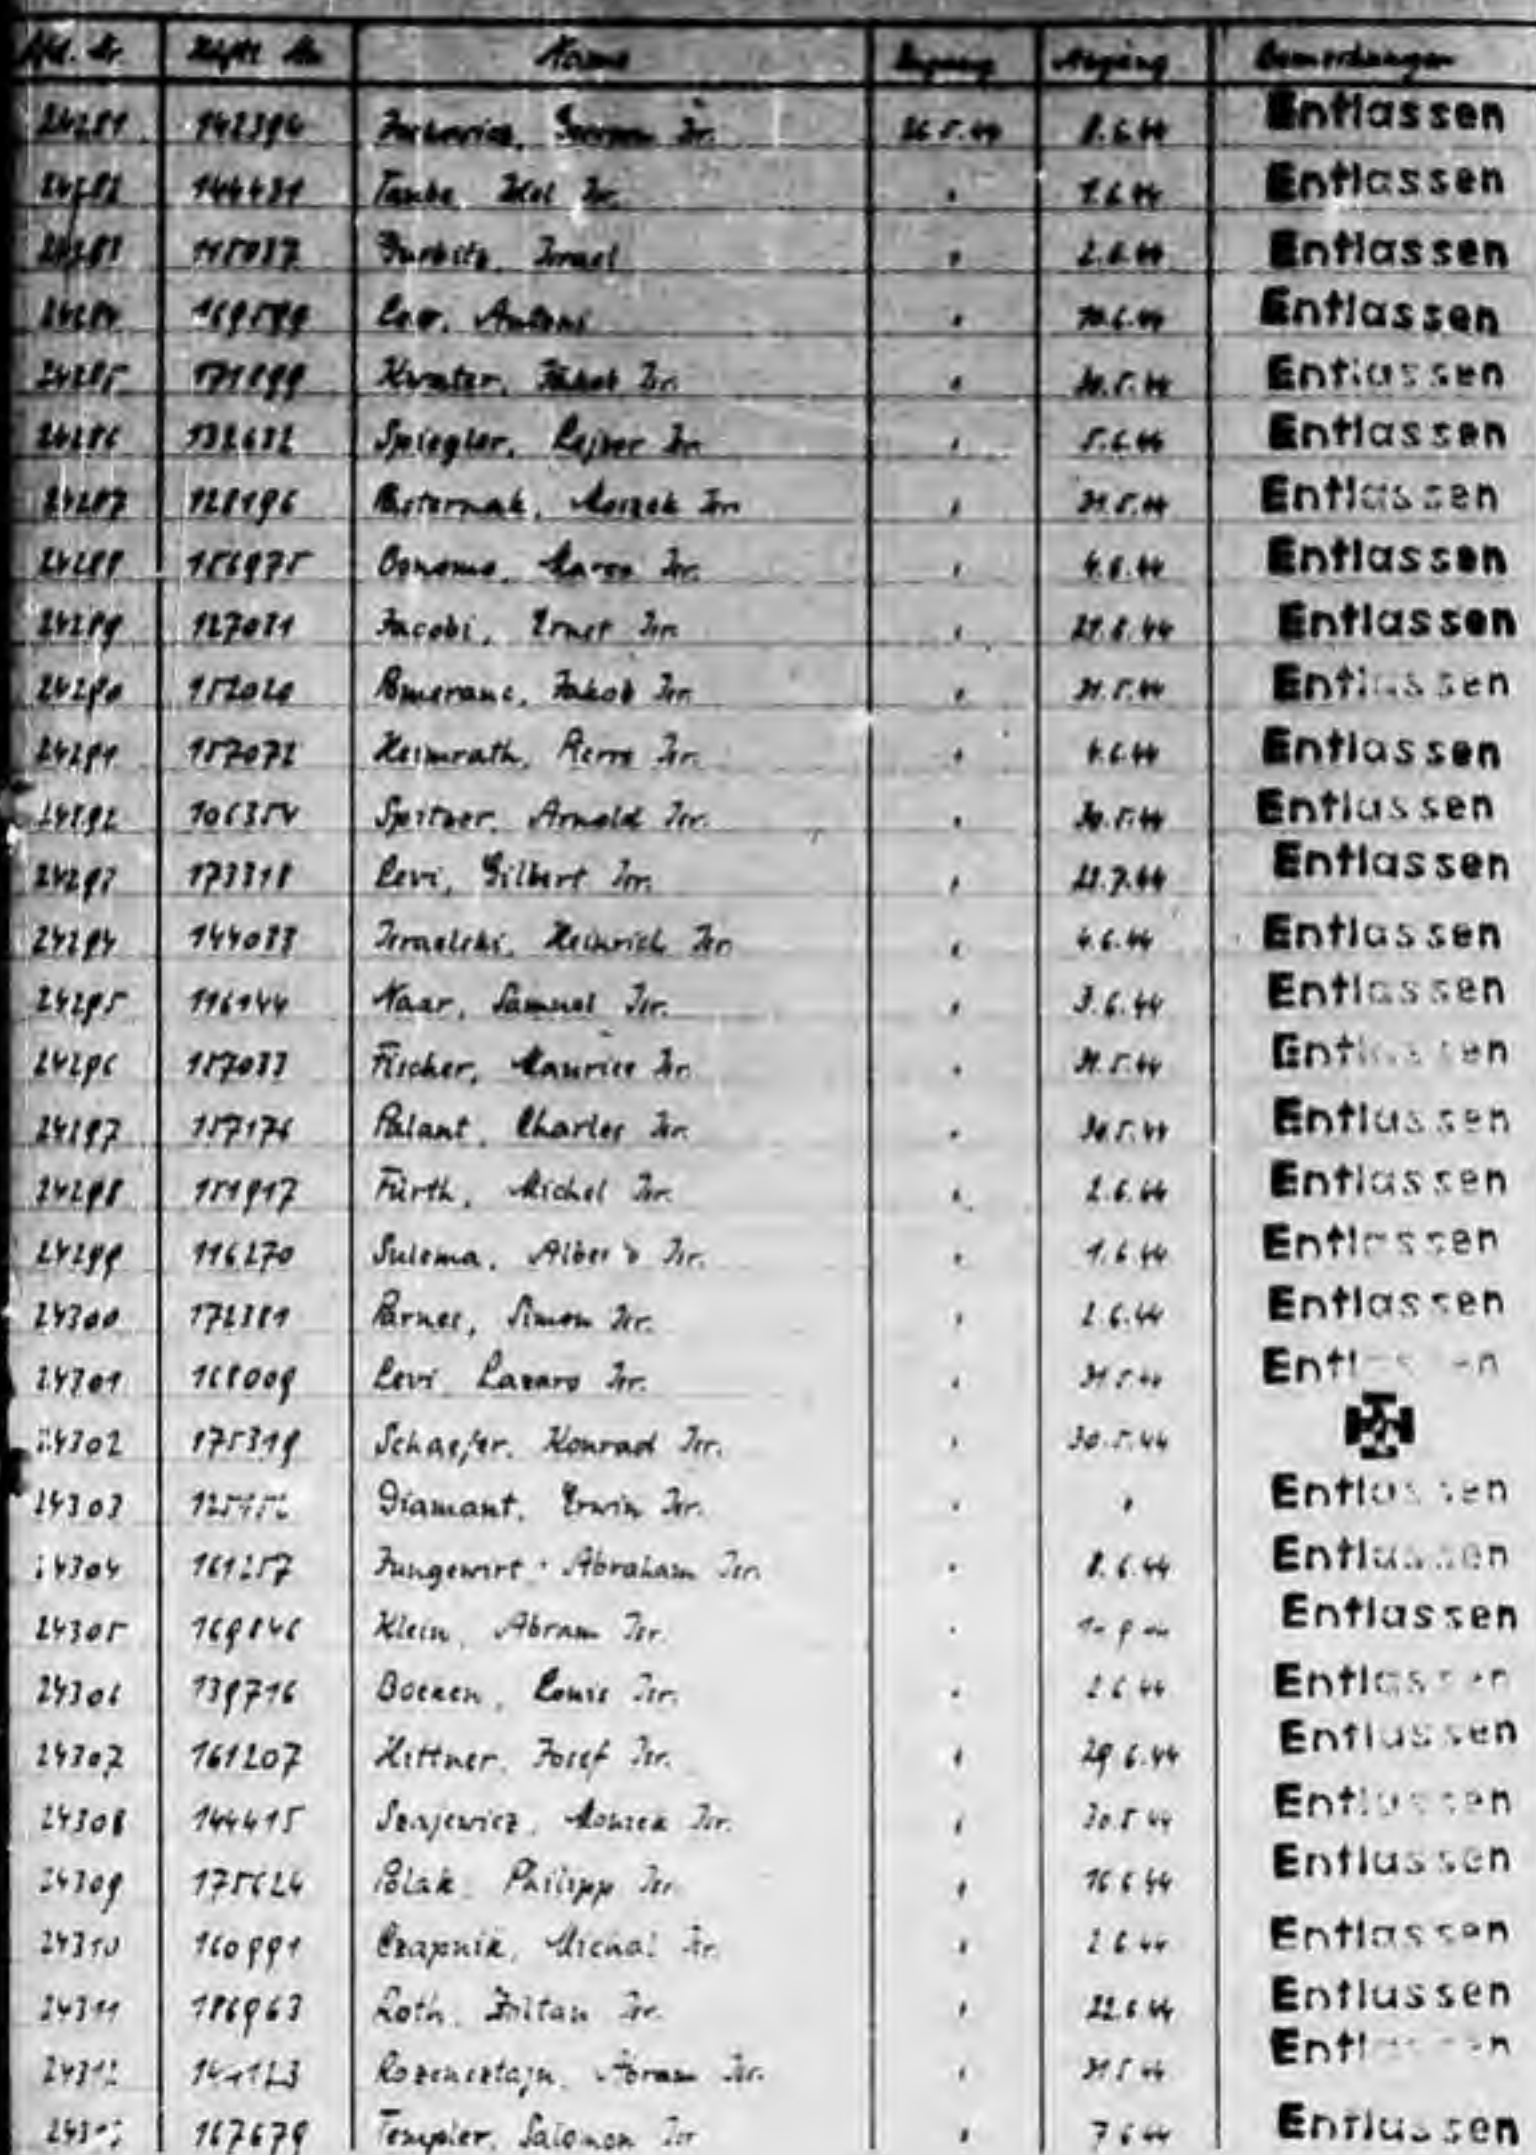 Lfd. Nr. Häftl. Nr. Name Zugang Abgang Bemerkungen
24281 142394 Isr. 26.5.44 8.6.44 Entlassen
24282 144431 Taube, Isr. " 1.6.44 Entlassen
24283 115037 Israel " 2.6.44 Entlassen
24284 169599 Antoni " 10.6.44 Entlassen
24285 171899 Kwater, Jakob Isr. " 30.5.44 Entlassen
24286 132632 Spiegler, Lejzer Isr. " 5.6.44 Entlassen
24287 128196 Pasternak, Moszek Isr. " 31.5.44 Entlassen
24288 156975 Isr. " 4.6.44 Entlassen
24289 127081 Jacobi, Ernst Isr. " 21.8.44 Entlassen
24290 152020 Pomeranc, Jakob Isr. " 31.5.44 Entlassen
24291 157072 Heimrath, Pierre Isr. " 4.6.44 Entlassen
24292 106354 Spitzer, Arnold Isr. " 30.5.44 Entlassen
24293 173318 Levi, Gilbert Isr. " 22.7.44 Entlassen
24294 144033 Israelski, Heinrich Isr. " 4.6.44 Entlassen
24295 116144 Naar, Samuel Isr. " 3.6.44 Entlassen
24296 157033 Fischer, Maurice Isr. " 31.5.44 Entlassen
24297 157176 Palant, Charles Isr. " 30.5.44 Entlassen
24298 151917 Fürth, Michel Isr. " 2.6.44 Entlassen
24299 116270 Sulema, Isr. " 1.6.44 Entlassen
24300 172381 Parnes, Simon Isr. " 2.6.44 Entlassen
24301 168009 Levi, Lazaro Isr. " 31.5.44 Entlassen
24302 175319 Schaefer, Konrad Isr. " 30.5.44
24303 Diamant, Erwin Isr. " " Entlassen
24304 161257 Jungewirt, Abraham Isr. " 8.6.44 Entlassen
24305 169846 Klein, Abram Isr. " Entlassen
24306 139716 Boeken, Louis Isr. " 2.6.44 Entlassen
24307 161207 Hittner, Josef Isr. " 29.6.44 Entlassen
24308 144415 Szajewicz, Isr. " 30.5.44 Entlassen
24309 175624 Polak, Philipp Isr. " 16.6.44 Entlassen
24310 160991 Czapnik, Michal Isr. " 2.6.44 Entlassen
24311 186963 Roth, Zoltan Isr. " 22.6.44 Entlassen
24312 Rozensztajn, Abram Isr. " 31.5.44 Entlassen
167679 Templer, Salomon Isr. " 7.6.44 Entlassen